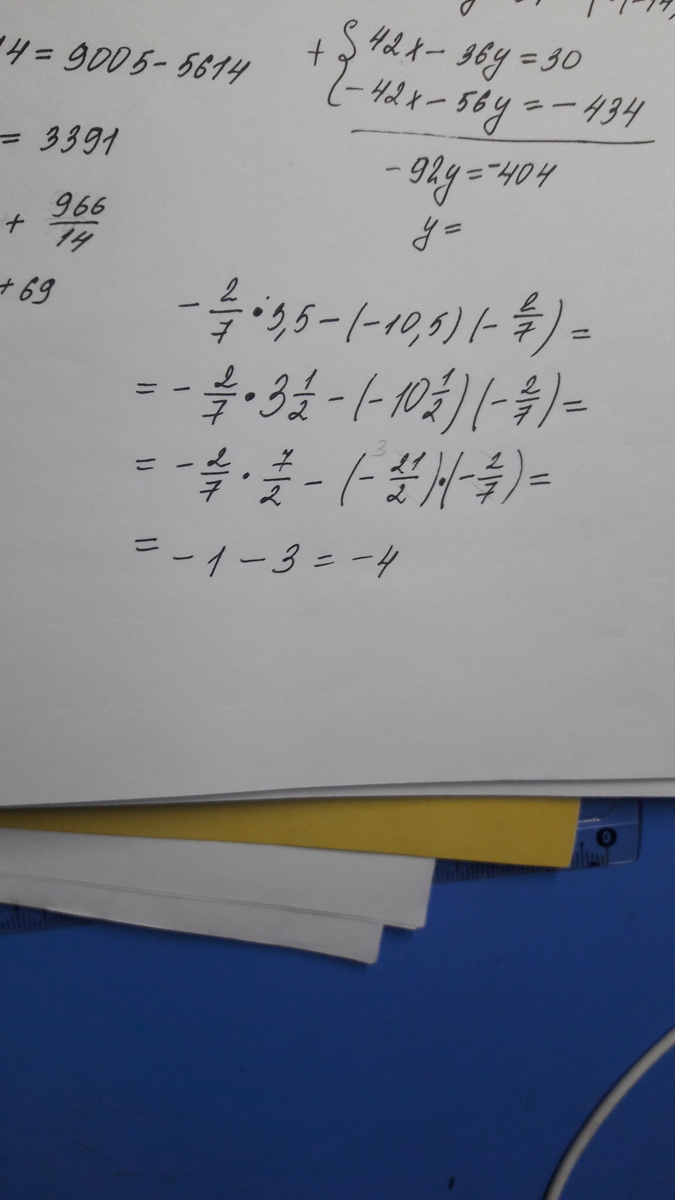 14 = 9005 - 5614
= 3391
+ 966/14
+ 69
+ { 42x - 36y = 30
- 42x - 56y = - 434
- 92y = -404
y =
- 2/7 • 3,5 - (-10,5) (- 2/7) =
= - 2/7 • 3 1/2 - (-10 1/2) (- 2/7) =
= - 2/7 · 7/2 - (- 21/2) · (- 2/7) =
3
= - 1 - 3 = - 4
0